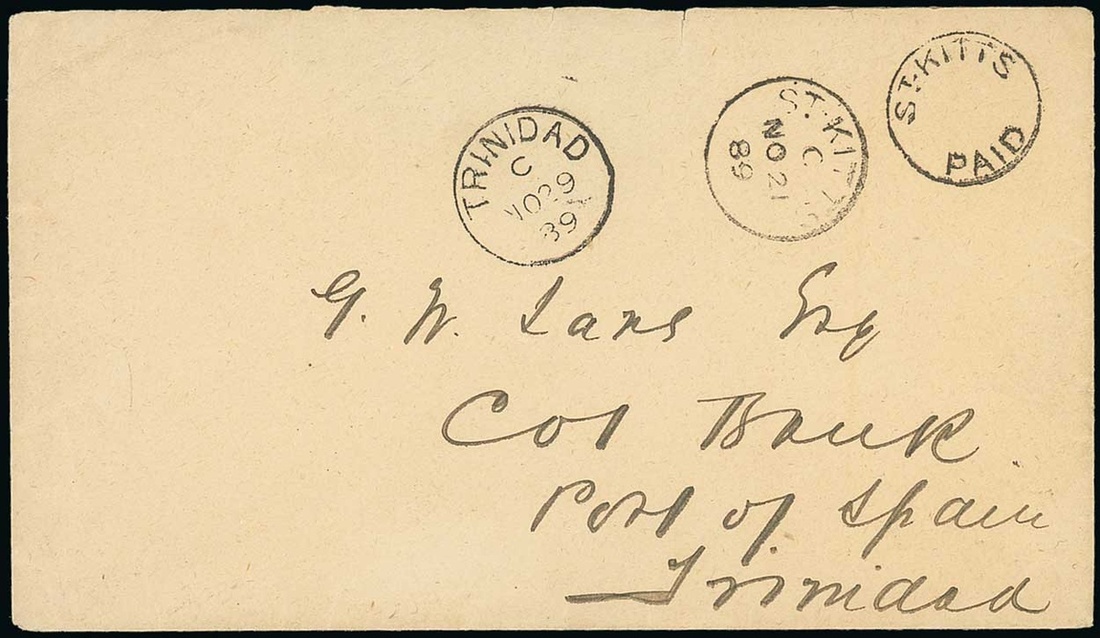 ST. KITTS
PAID
ST. KITTS
C
NO 21
89
TRINIDAD
C
NO 29
89
G. W. Esq
Col Bank
Port of Spain
Trinidad